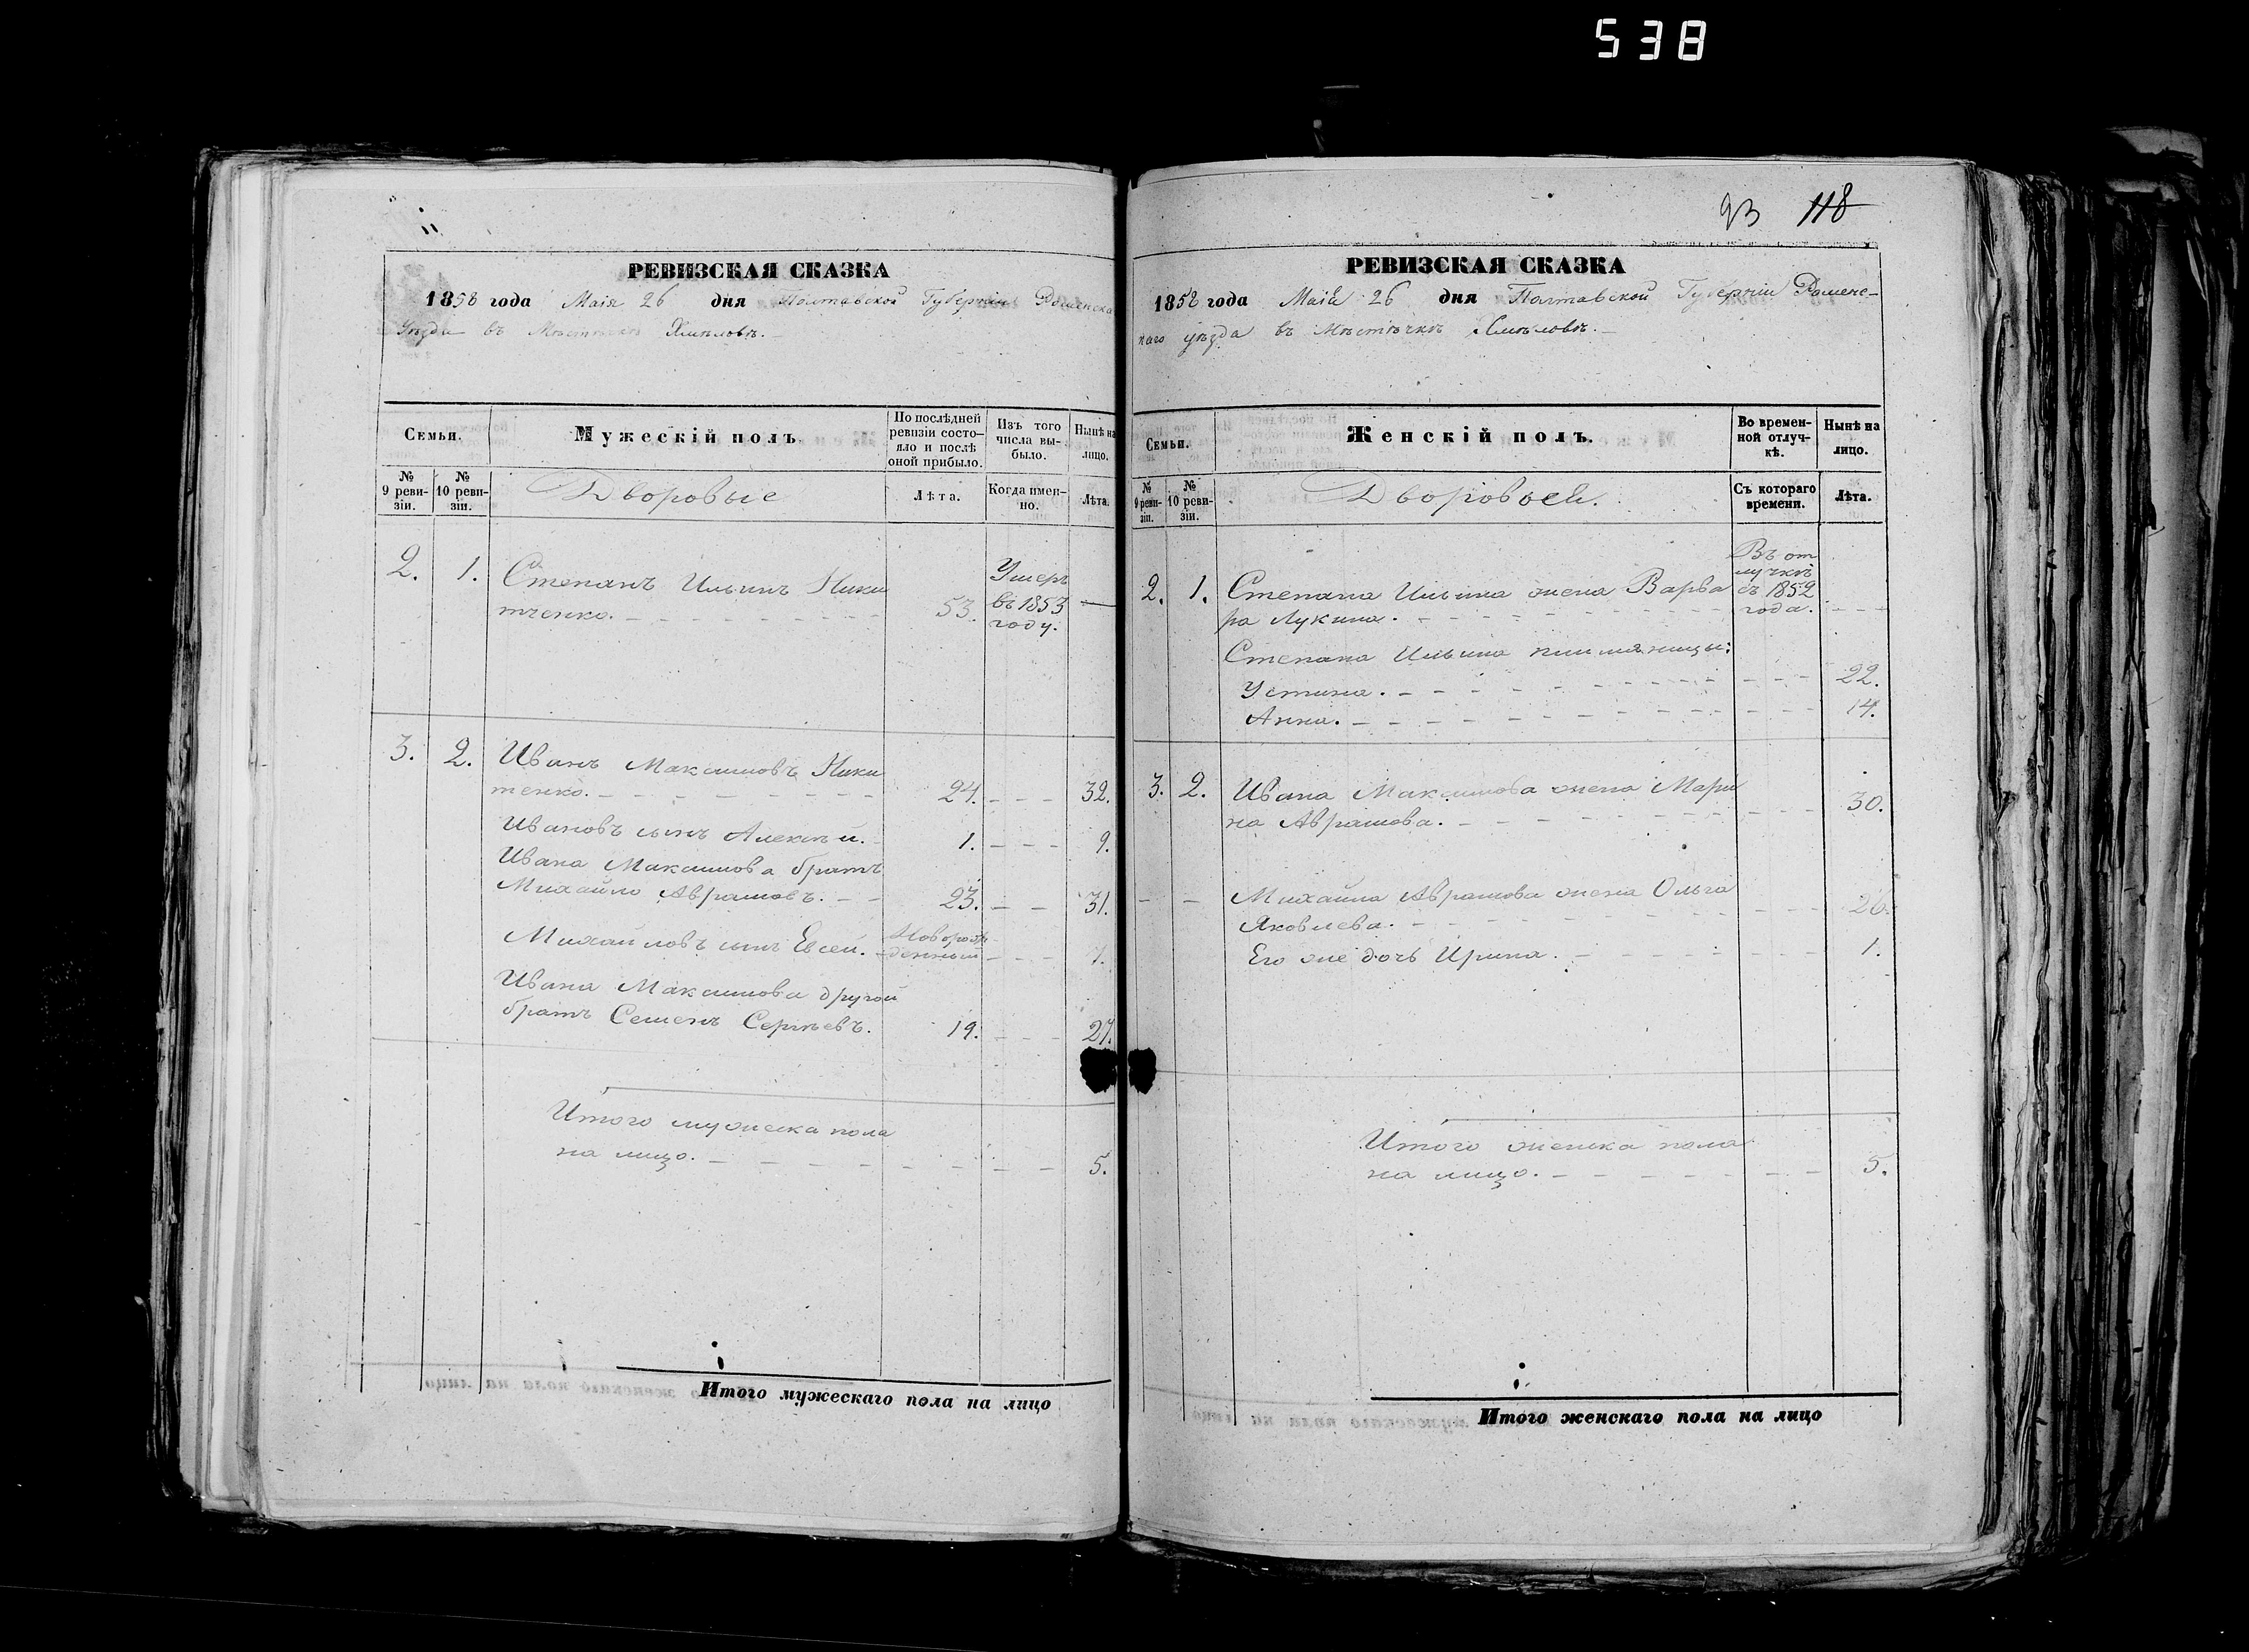 538
РЕВИЗСКАЯ СКАЗКА
1858 года Маія 26 дня Полтавской Губерніи Роменска
Уѣзда въ Мѣстечкѣ Хмѣловѣ.
Семьи.
Мужескій полъ.
По послѣдней
ревизіи состо-
яло и послѣ
оной прибыло.
Изъ того
числа вы-
было.
Нынѣ на
лицо.
№
9 реви-
зіи.
№
10 реви-
зіи.
Дворовые
Лѣта.
Когда имен-
но.
Лѣта.
2. 1. Степанъ Ильинъ Ники
тченко. 53.
Умеръ
въ 1853
году.
3. 2. Иванъ Максимовъ Ники
тенко. 24. 32.
Ивановъ сынъ Алексѣй. 1. 9.
Ивана Максимова братъ
Михайло Аврамовъ. 23. 31.
Михайловъ сынъ Евсей. Новорож
денный 7.
Ивана Максимова другой
братъ Семенъ Сергѣевъ. 19. 27.
Итого мужеска пола
на лицо. 5.
Итого мужескаго пола на лицо
93 118
РЕВИЗСКАЯ СКАЗКА
1858 года Маія 26 дня Полтавской Губерніи Роменс-
каго уѣзда въ Мѣстѣчкѣ Хмѣловѣ.
Семьи.
Женскій полъ.
Во времен-
ной отлуч-
кѣ.
Нынѣ на
лицо.
№
9 реви-
зіи.
№
10 реви-
зіи.
Дворовыя.
Съ котораго
времени.
Лѣта.
2. 1. Степана Ильина жена Варва
ра Лукина.
Въ от
лучкѣ
съ 1852
года.
Степана Ильина племяницы:
Устина. 22.
Анна. 14.
3. 2. Ивана Максимова жена Мари
на Аврамова. 30.
Михайла Аврамова жена Ольга
Яковлева. 26.
Его же дочь Ирина. 1.
Итого женска пола
на лицо. 5.
Итого женскаго пола на лицо